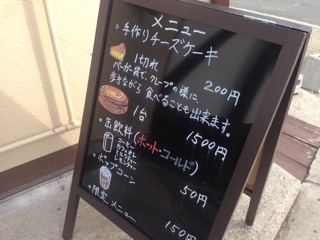 メニュー
・手作りチーズケーキ
1切れ 200円
バーガー袋で、クレープの様に
歩きながら食べることも出来ます。
1台 1500円
・缶飲料(ホット・コールド)
コーラ
カフェオレ
50円
・ポップコーン
150円
・限定メニュー